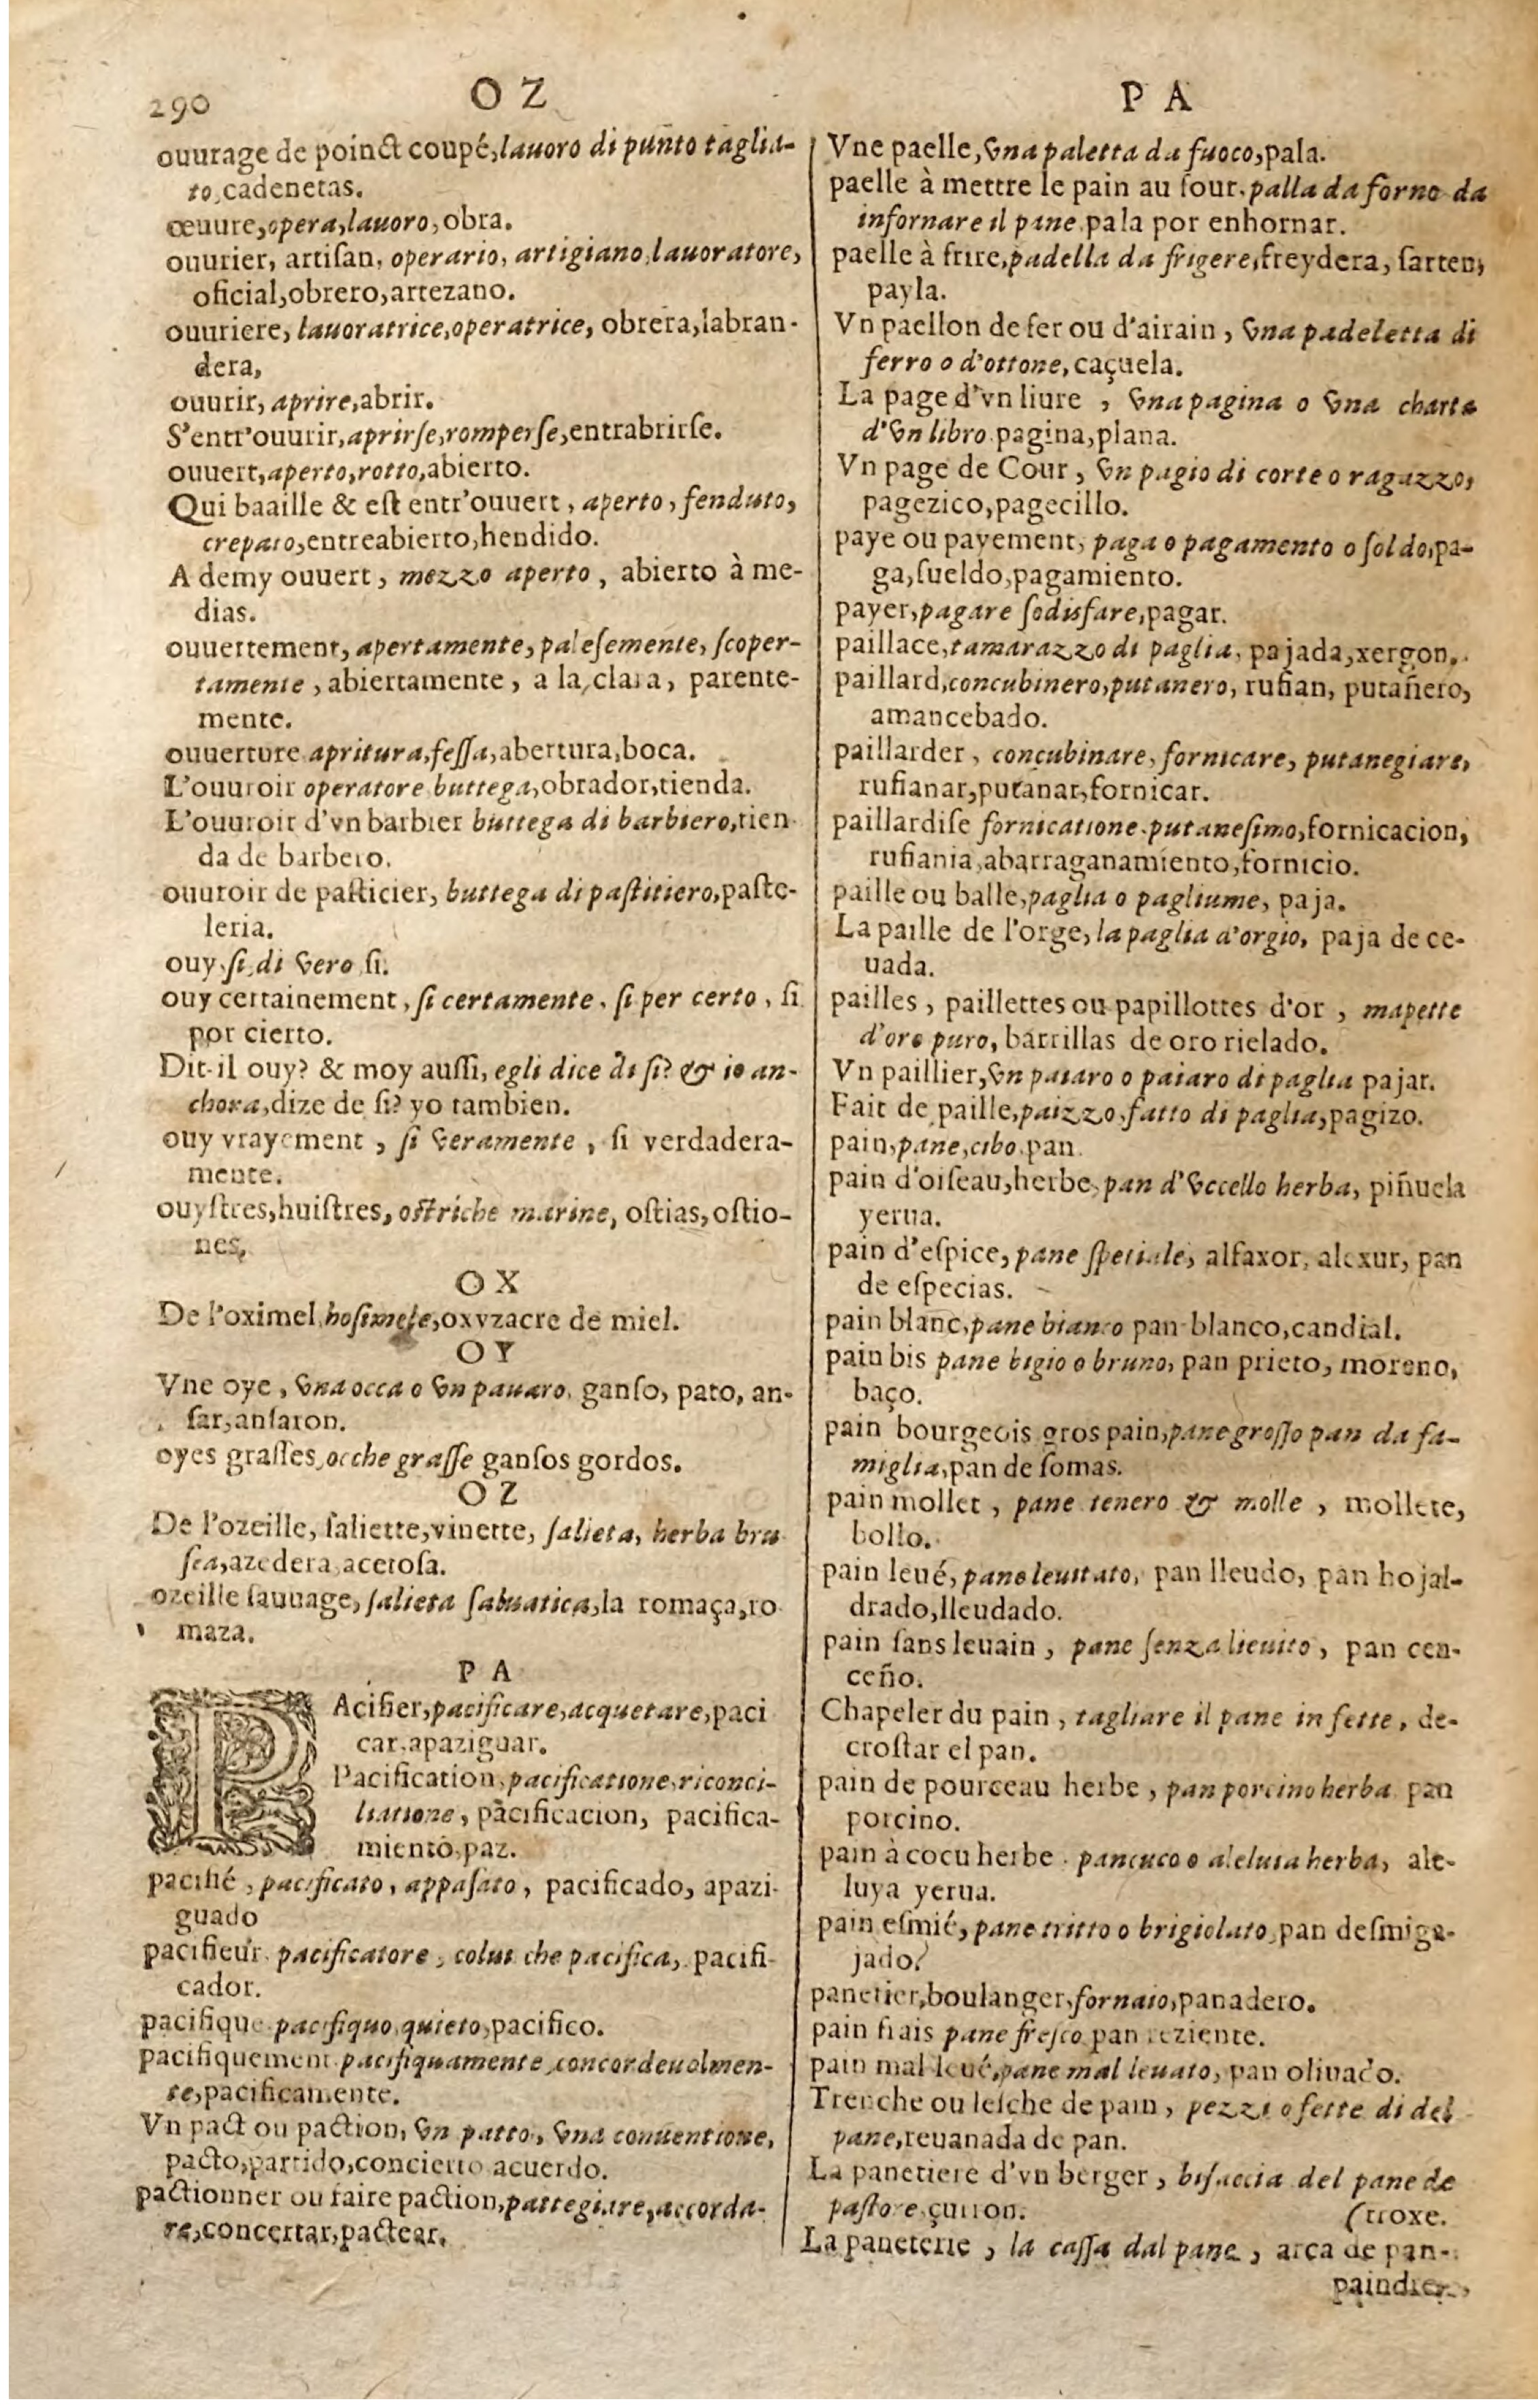 290
O Z
ouurage de poinct coupé, lauoro di punto taglia-
to, cadenetas.
œuure, opera, lauoro, obra.
ouurier, artiſan, operario, artigiano, lauoratore,
oficial, obrero, artezano.
ouuriere, lauoratrice, operatrice, obrera, labran-
dera,
ouurir, aprire, abrir.
S'entr'ouurir, aprirſe, romperſe, entrabrirſe.
ouuert, aperto, rotto, abierto.
Qui baaille & eſt entr'ouuert, aperto, fenduto,
crepato, entreabierto, hendido.
A demy ouuert, mezzo aperto, abierto à me-
dias.
ouuertement, apertamente, paleſemente, ſcoper-
tamente, abiertamente, a la clara, parente-
mente.
ouuerture apritura, feſſa, abertura, boca.
L'ouuroir operatore buttega, obrador, tienda.
L'ouuroir d'vn barbier buttega di barbiero, tien-
da de barbero.
ouuroir de paſticier, buttega di paſtitiero, paſte-
leria.
ouy, ſi, di vero, ſi.
ouy certainement, ſi certamente, ſi per certo, ſi
por cierto.
Dit-il ouy? & moy auſſi, egli dice di ſi? & io an-
chora, dize de ſi? yo tambien.
ouy vrayement, ſi veramente, ſi verdadera-
mente.
ouyſtres, huiſtres, oſtriche marine, oſtias, oſtio-
nes.
O X
De l'oximel, hoſimele, oxyzacre de miel.
O Y
Vne oye, vna occa o vn pauaro, ganſo, pato, an-
ſar, anſaron.
oyes graſſes, ocche graſſe ganſos gordos.
O Z
De l'ozeille, ſaliette, vinette, ſalieta, herba bru
ſca, azedera, acetoſa.
ozeille ſauuage, ſalieta ſaluatica, la romaça, ro
maza.
P A
PAcifier, pacificare, acquetare, paci
car, apaziguar.
Pacification, pacificatione, riconci-
liatione, pacificacion, pacifica-
miento, paz.
pacifié, pacificato, appaſato, pacificado, apazi-
guado
pacifieur, pacificatore, colui che pacifica, pacifi-
cador.
pacifique pacifiquo, quieto, pacifico.
pacifiquement pacifiquamente, concordeuolmen-
te, pacificamente.
Vn pact ou paction, vn patto, vna conuentione,
pacto, partido, concierto acuerdo.
pactionner ou faire paction, pattegiare, accorda-
re, concertar, pactear.
P A
Vne paelle, vna paletta da fuoco, pala.
paelle à mettre le pain au four, palla da forno da
infornare il pane, pala por enhornar.
paelle à frire, padella da frigere, freydera, ſarten,
payla.
Vn paellon de fer ou d'airain, vna padeletta di
ferro o d'ottone, caçuela.
La page d'vn liure, vna pagina o vna charta
d'vn libro, pagina, plana.
Vn page de Cour, vn pagio di corte o ragazzo,
pagezico, pagecillo.
paye ou payement, paga o pagamento o ſoldo, pa-
ga, ſueldo, pagamiento.
payer, pagare ſodisfare, pagar.
paillace, tamarazzo di paglia, pajada, xergon.
paillard, concubinero, putanero, rufian, putañero,
amancebado.
paillarder, concubinare, fornicare, putanegiare,
rufianar, putanar, fornicar.
paillardiſe fornicatione, putaneſimo, fornicacion,
rufiania, abarraganamiento, fornicio.
paille ou balle, paglia o pagliume, paja.
La paille de l'orge, la paglia d'orgio, paja de ce-
uada.
pailles, paillettes ou papillottes d'or, mapette
d'oro puro, barrillas de oro rielado.
Vn paillier, vn paiaro o paiaro di paglia pajar.
Fait de paille, paizzo, fatto di paglia, pagizo.
pain, pane, cibo, pan.
pain d'oiſeau, herbe, pan d'vccello herba, piñuela
yerua.
pain d'eſpice, pane ſpetiale, alfaxor, alexur, pan
de eſpecias.
pain blanc, pane bianco pan blanco, candial.
pain bis pane bigio o bruno, pan prieto, moreno,
baço.
pain bourgeois gros pain, pane groſſo pan da fa-
miglia, pan de ſomas.
pain mollet, pane tenero & molle, mollete,
bollo.
pain leué, pane leuitato, pan lleudo, pan hojal-
drado, lleudado.
pain ſans leuain, pane ſenza lieuito, pan cen-
ceño.
Chapeler du pain, tagliare il pane in fette, de-
croſtar el pan.
pain de pourceau herbe, pan porcino herba pan
porcino.
pain à cocu herbe, pancuco o aleluia herba, ale-
luya yerua.
pain eſmié, pane tritto o brigiolato, pan deſmiga-
jado.
panetier, boulanger, fornaio, panadero.
pain frais pane freſco pan reziente.
pain mal leué, pane mal leuato, pan oliuado.
Trenche ou leſche de pain, pezzi o fette di del
pane, reuanada de pan.
La panetiere d'vn berger, biſaccia del pane de
paſtore, çurron. (troxe.
La paneterie, la caſſa dal pane, arca de pan-
paindrer,